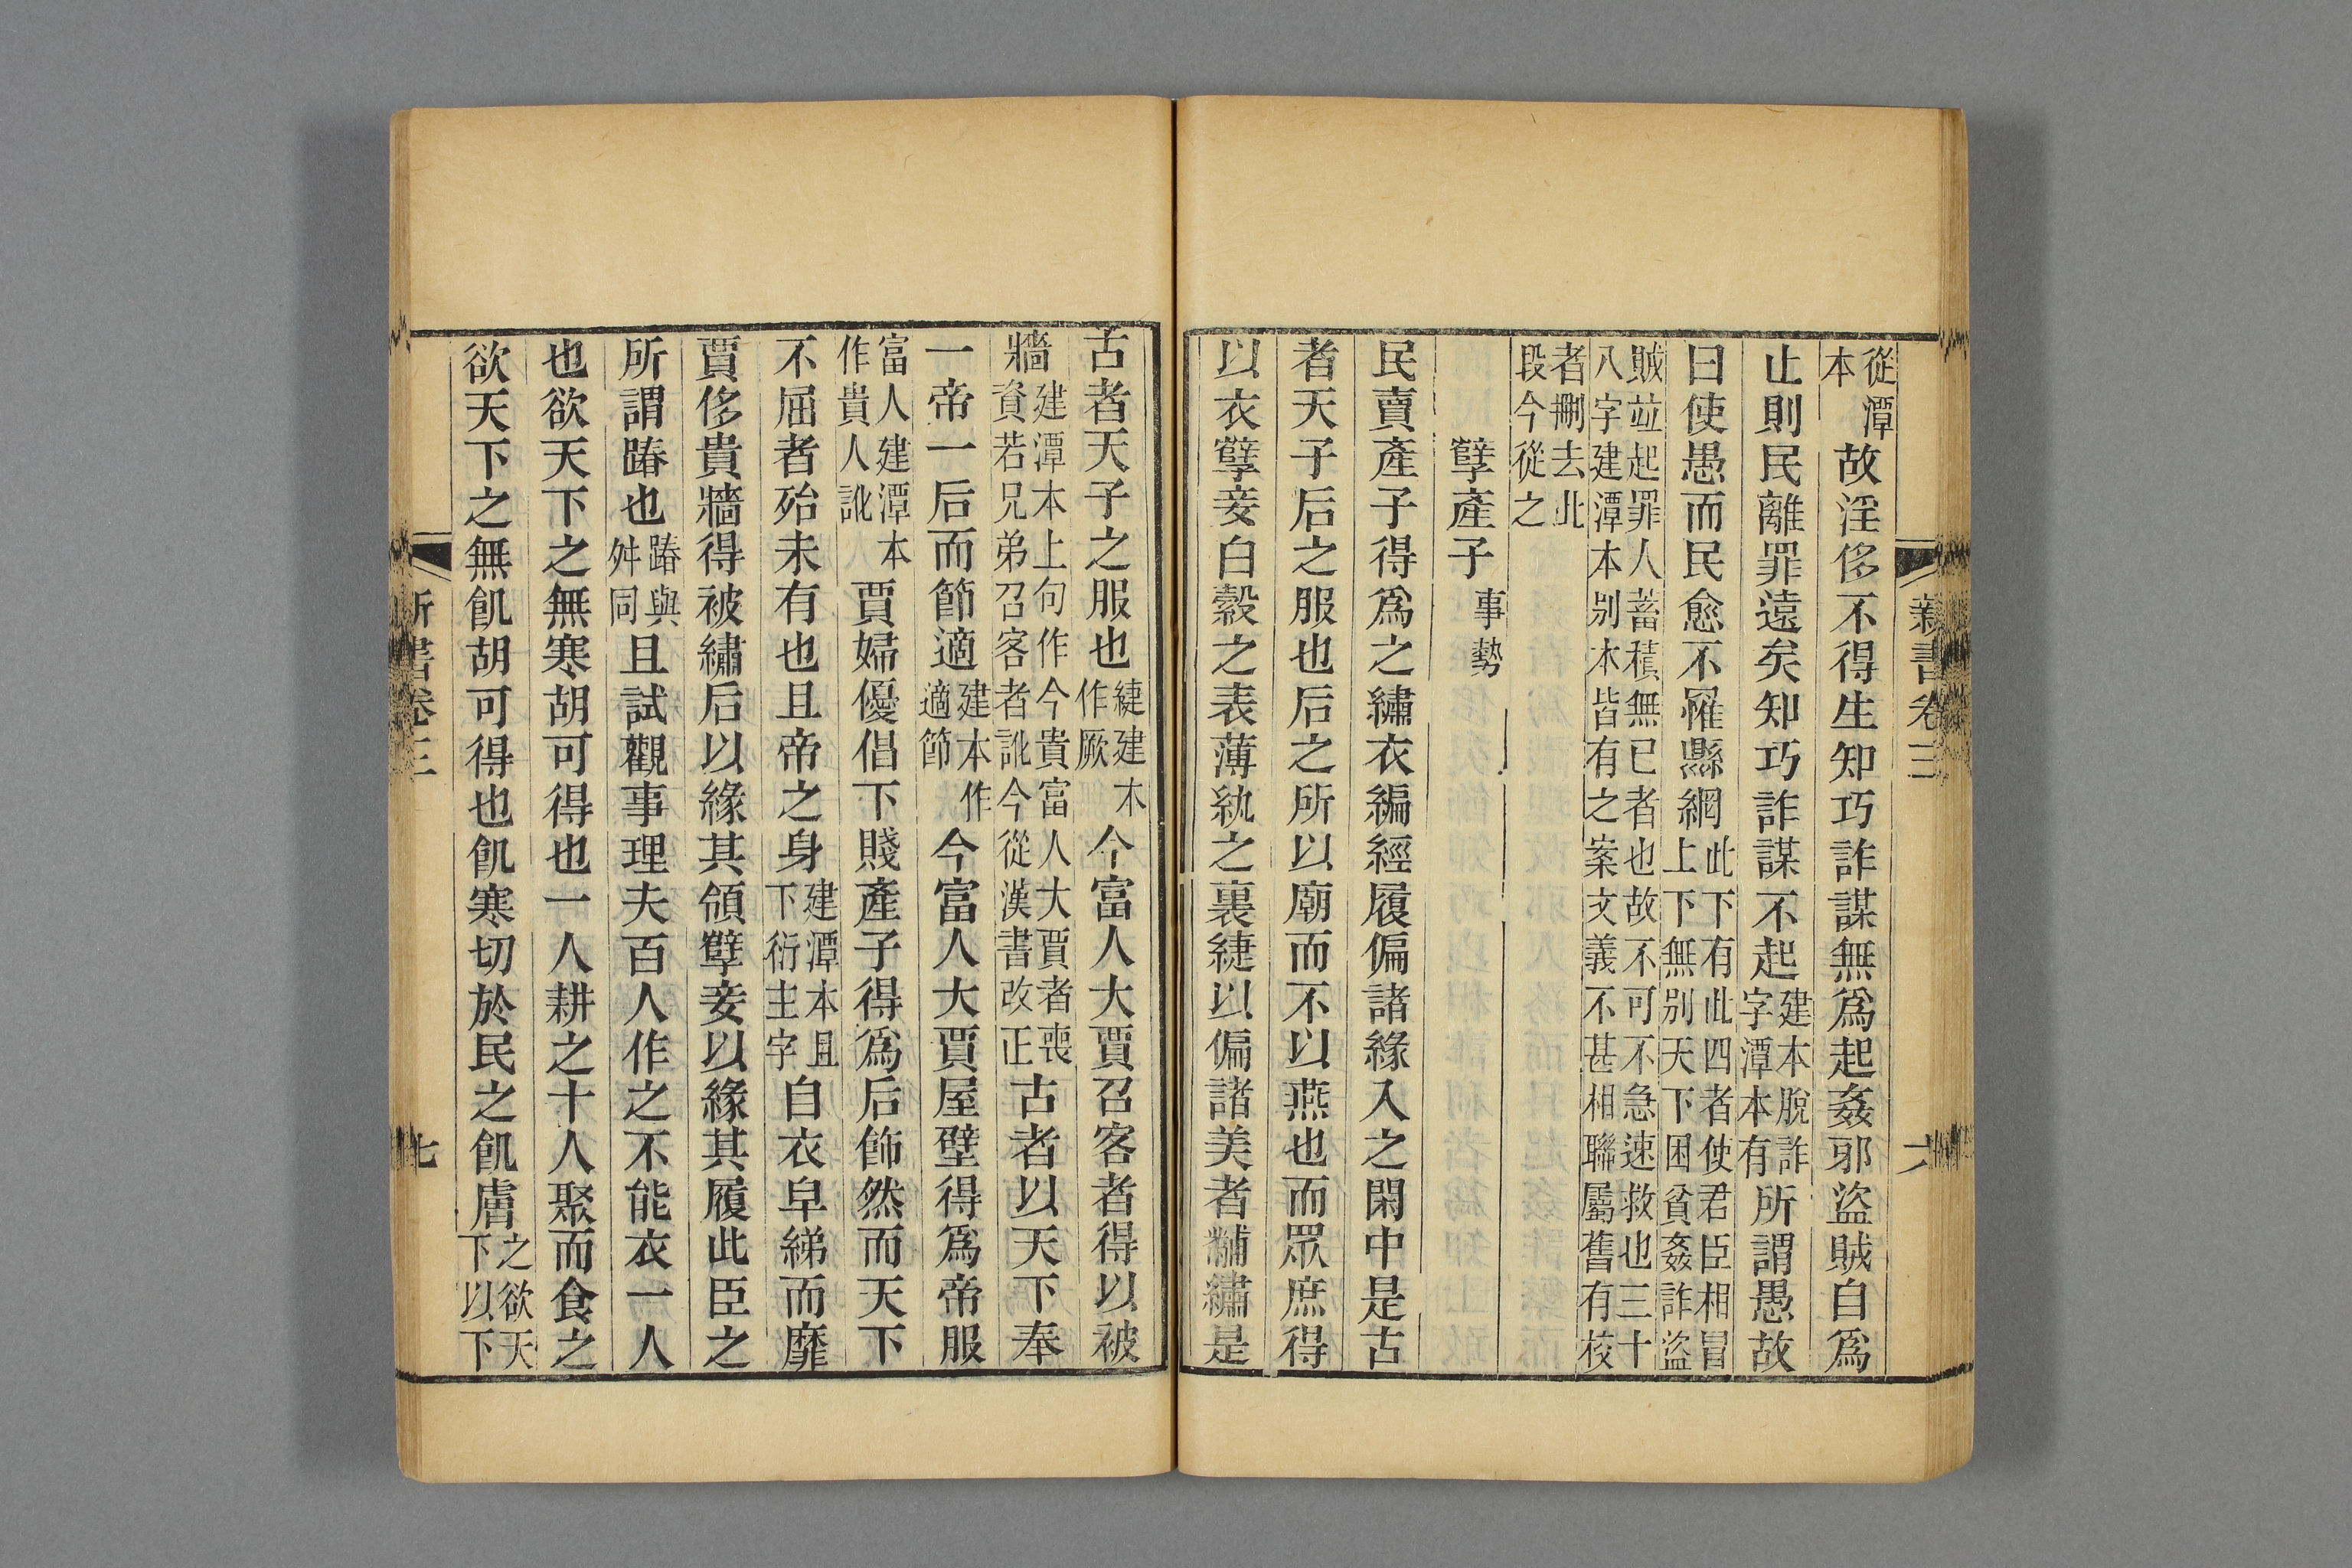 新書卷三 六
從潭本故淫侈不得生知巧詐謀無爲起姦邪盜賊自爲
止則民離罪遠矣知巧詐謀不起建本脫詐字潭本有所謂愚故
曰使愚而民愈不罹縣網此下有此四者使君臣相冒上下無別天下困貧姦詐盜
賊竝起罪人蓄積無已者也故不可不急速救也三十八字建潭本別本皆有之案文義不甚相聯屬舊有校
者刪去此段今從之
孽產子事勢
民賣產子得爲之繡衣編經履偏諸緣入之閑中是古
者天子后之服也后之所以廟而不以燕也而眾庶得
以衣孽妾白縠之表薄紈之裏緁以偏諸美者黼繡是
古者天子之服也緁建本作厥今富人大賈召客者得以被
牆建潭本上句作今貴富人大賈者喪資若兄弟召客者訛今從漢書改正古者以天下奉
一帝一后而節適建本作適節今富人大賈屋壁得爲帝服
富人建潭本作貴人訛賈婦優倡下賤產子得爲后飾然而天下
不屈者殆未有也且帝之身建潭本且下衍主字自衣皁綈而靡
賈侈貴牆得被繡后以緣其領孽妾以緣其履此臣之
所謂踳也踳與舛同且試觀事理夫百人作之不能衣一人
也欲天下之無寒胡可得也一人耕之十人聚而食之
欲天下之無飢胡可得也飢寒切於民之飢膚之欲天下以下
新書卷三 七